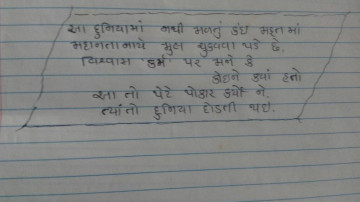 આ દુનિયામાં નથી મળતું કંઈ મફતમાં
મહાનતાનાયે મુલ ચુકવવા પડે છે.
વિશ્વાસ 'કર્મ' પર મને કે
કોઇને ક્યાં હતો
આ તો પેટે પોકાર કર્યો ને,
ત્યાંતો દુનિયા દોડતી થઇ.